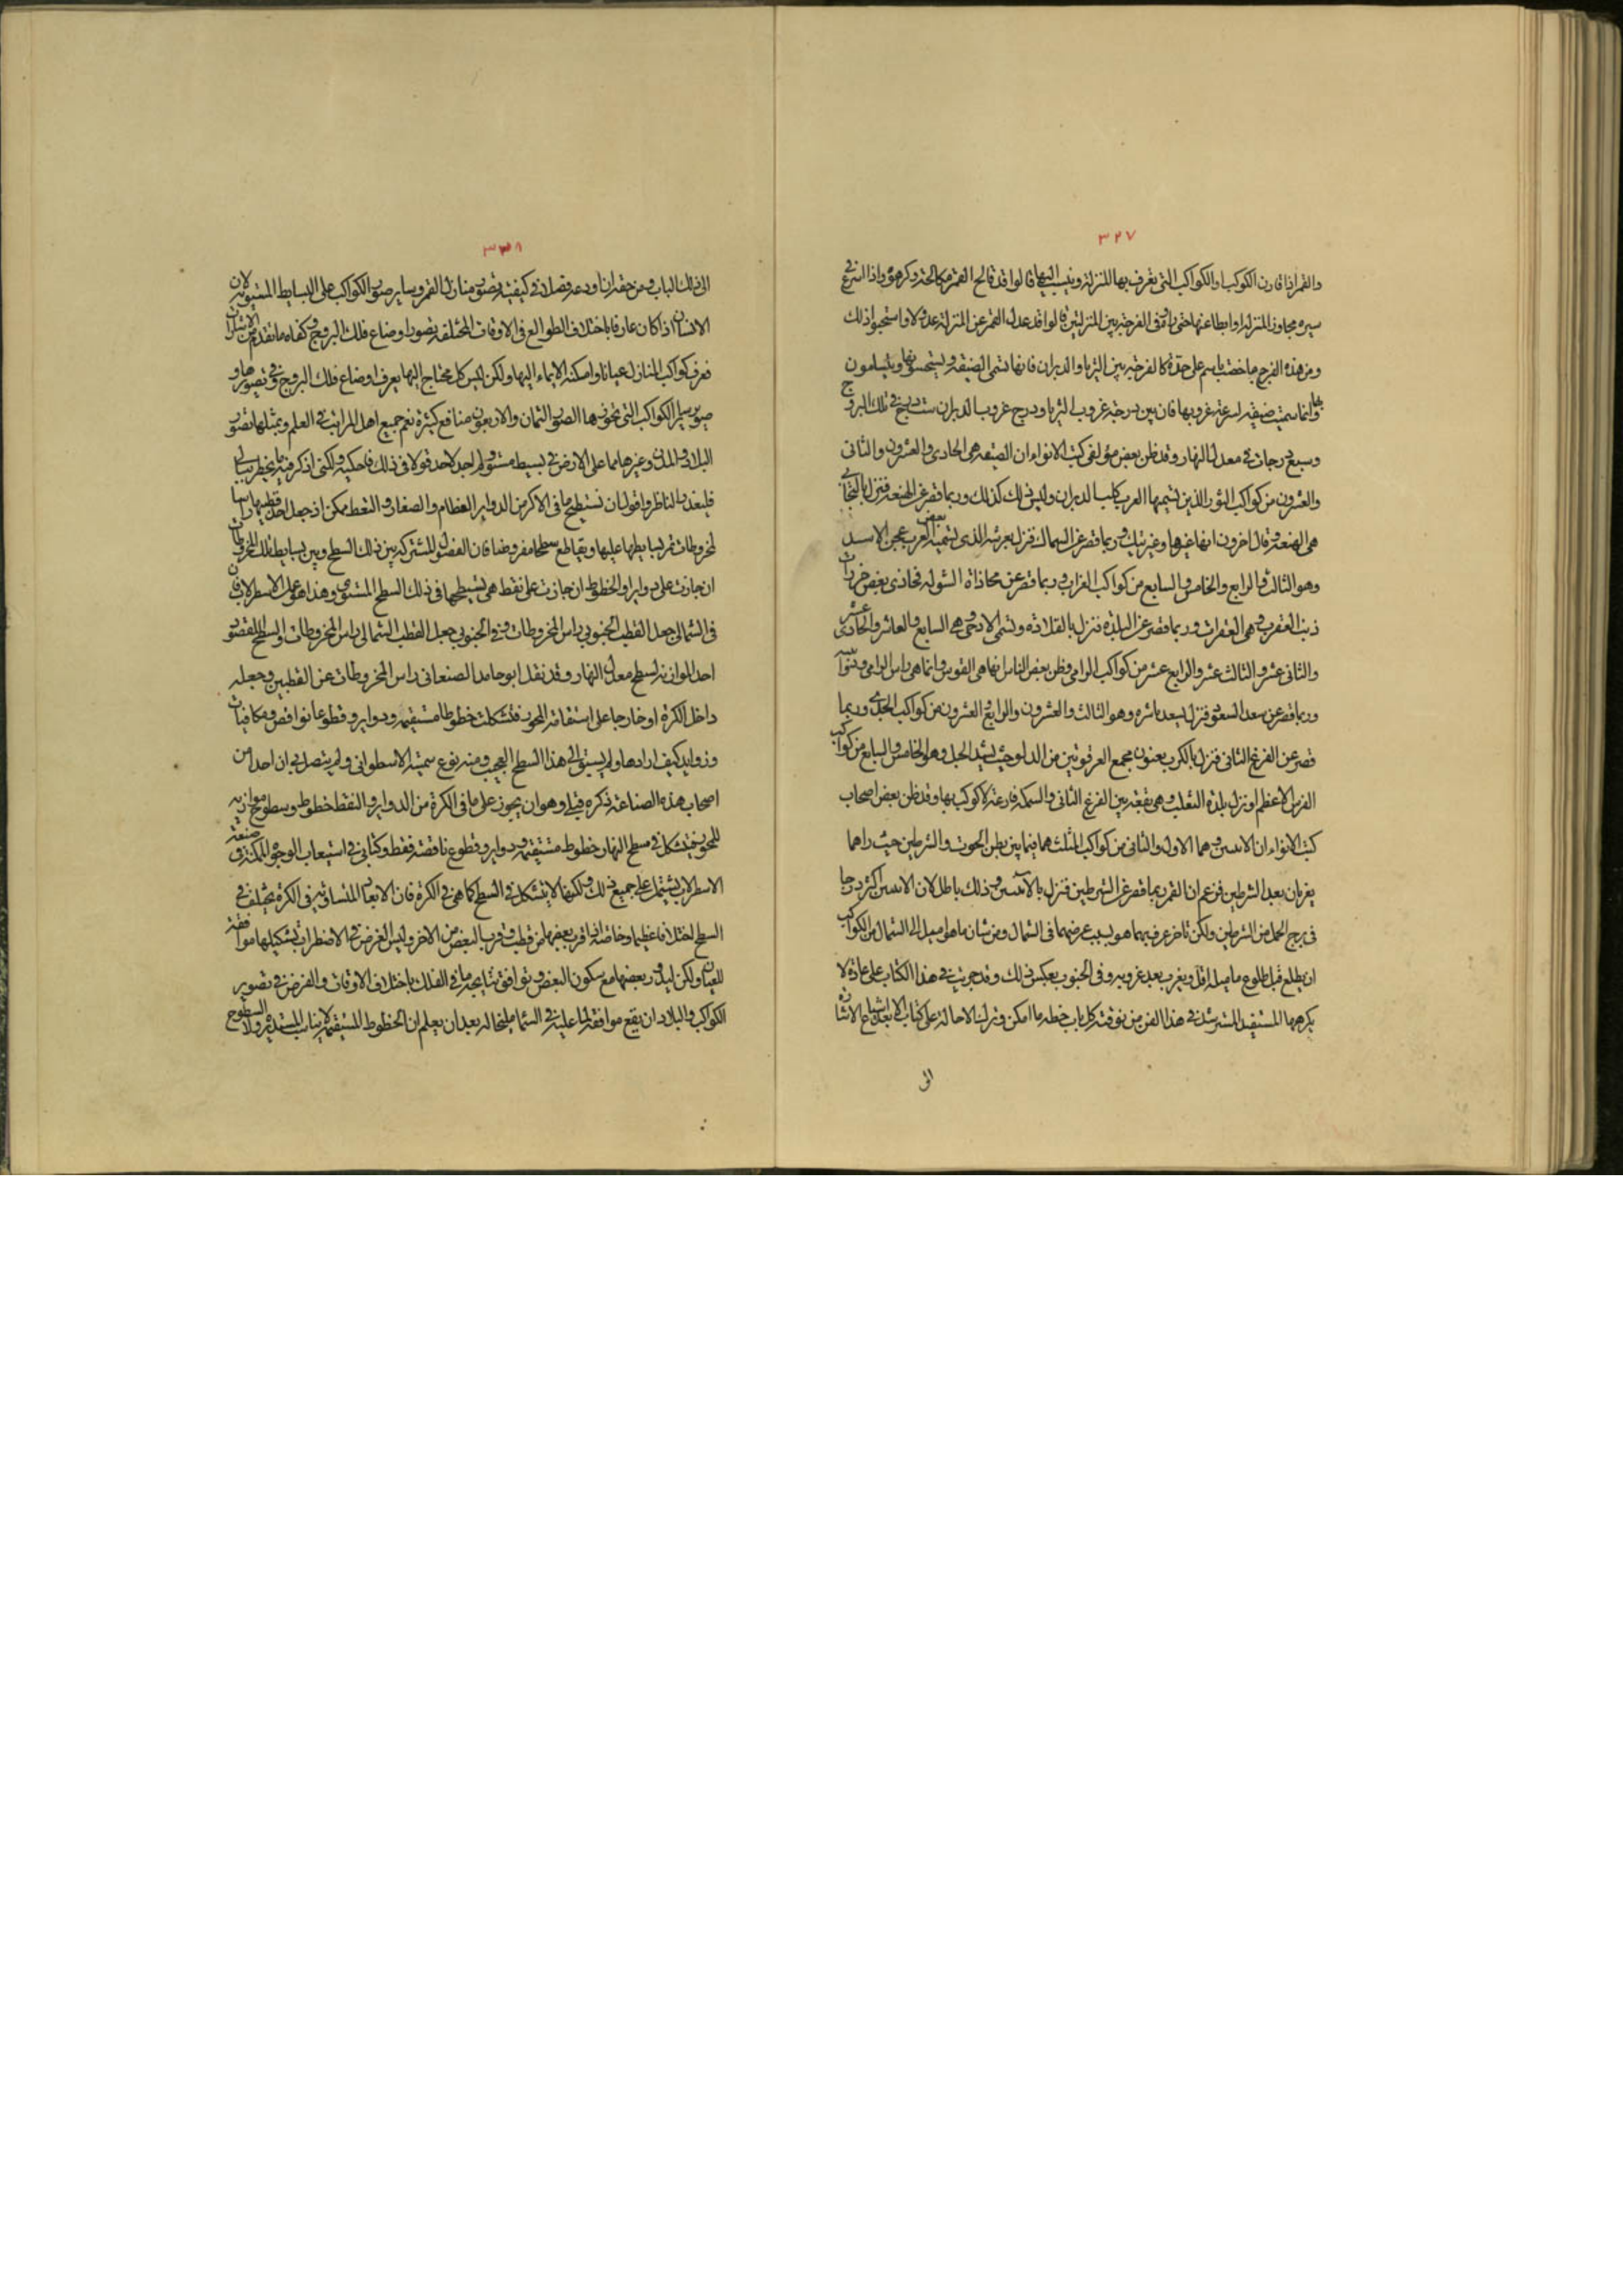 ٣٢٧
والقمر اذا قارن الكوكب او الكواكب التى تعرف بها المنزلة وينسب اليها قالوا قد كالح القمر مكالحة وكرهوه واذا اسرع فى
سيره مجاوز المنزلة او ابطا عنها حتى يا فى الفرجة بين المنزلتين قالوا قد عدل القمر عن المنزلة عدولا واستحبوا ذلك
ومن هذه الفرج ما خصت باسم على حدة كالفرجة بين الثريا والدبران فانها تسمى الضيقة ويستنحسونها ويتشامون
بها وانما سميت ضيقة لسرعة غروبها فان بين درجة غروب الثريا ودرج غروب الدبران ست درج فى فلك البروج
وسبع درجات فى معدل النهار وقد ظن بعض مؤلفى كتب الانواء ان الضيقة هى الحادى والعشرون والثانى
والعشرون من كواكب الثور اللذين تسميهما العرب كلبا الدبران وليس ذلك كذلك وربما قصر عن الهنعة فنزل بالتحايى
هى الهنعة وقال اخرون انها غيرها وغير تيك وربما قصر عن السماك فنزل بعرشه الذى تسميه بعض العرب عجز الاسد
وهو الثالث والرابع والخامس والسابع من كواكب الغراب وربما قصر عن محاذاة الشولة فحاذى بعض خرزات
ذنب العقرب وهى الفقرات وربما قصر عن البلدة فنزل بالقلادة وتسمى الادحى وهى السابع والعاشر والحادى عشر
والثانى عشر والثالث عشر والرابع عشر من كواكب الرامى وظن بعض الناس انها هى القوس وانما هى راس الرامى وذؤابتيه
وربما قصر عن سعد السعود فنزل بسعد ناشره وهو الثالث والعشرون والرابع والعشرون من كواكب الجدى وربما
قصر عن الفرغ الثانى فنزل بالكرب يعنون مجمع العرقوتين من الدلو حيث يشد الحبل وهو الخامس والسابع من كواكب
الفرس الاعظم او نزل ببلدة الثعلب وهى بقعة بين الفرغ الثانى والسمكة فارغة لا كوكب بها وقد ظن بعض اصحاب
كتب الانواء ان الانيسين وهما الاول والثانى من كواكب المثلث هما فيما بين بطن الحوت والشرطين حيث راهما
يغربان بعد الشرطين فزعم ان القمر ربما قصر عن الشرطين فنزل بالانيسين وذلك باطل لان الانيسين اكثر درجا
فى برج الحمل من الشرطين ولكن تاخر غروبهما هو لسبب عرضهما فى الشمال ومن شان ما هو اميل الى الشمال من الكواكب
ان يطلع قبل طلوع ما ميله اقل ويغرب بعد غروبه وفى الجنوب بعكس ذلك وقد جريت فى هذا الكتاب على عادة لا
يكرهها المستفيد المسترشد فى هذا الفن من توفية كل باب حظه ما امكن وترك الاحالة على كتاب الا بعد اشباع الاشارة
الى
٣٣٨
الى ذلك الباب ومن حقه ان اودعه فصلا فى كيفية تصوير منازل القمر وساير صور الكواكب على البسايط المستوية لان
الانسان اذا كان عارفا باختلاف الطوالع فى الاوقات المختلفة بتصور اوضاع فلك البروج كفاه ما تقدم من الاشارات
فعرف كواكب المنازل عيانا وامكنه الايماء اليها ولكن ليس كل محتاج اليها يعرف اوضاع فلك البروج وفى تصويرها و
صور ساير الكواكب التى تحوزها الصور الثمان والاربعون منافع كثيرة تعم جميع اهل المراتب فى العلم وبمثلها تصور
البلاد والمدن وغيرها مما على الارض فى بسيط مستو ولم اجد لاحد قولا فى ذلك فاحكيه ولكنى اذكر فيه ما يخطر ببالى
فليعذرنا الناظر واقول ان تسطيح ما فى الاكر من الدواير العظام والصغار والنقط ممكن اذ جعل احد قطبيها راسا
لمخروطات تمر بسايطها عليها ويقاطع سطحا مفروضا فان الفصول المشتركة بين ذلك السطح وبين بسايط تلك المخروطات
ان جازت على دواير او الخطوط ان جازت على نقط هى تسطيحها فى ذلك السطح المستوى وهذا هو عمل الاسطرلاب فان
فى الشمالى جعل القطب الجنوبى راس المخروطات وفى الجنوبى جعل القطب الشمالى راس المخروطات والسطح المقصود
احد الموازية لسطح معدل النهار وقد نقل ابو حامد الصغانى راس المخروطات عن القطبين وجعله
داخل الكرة او خارجا على استقامة المحور فتشكلت خطوطا مستقيمة ودواير وقطوعا نواقص ومكافيات
وزوايد كيف ارادها ولم يسبق الى هذا السطح العجيب ومنه نوع سميته الاسطوانى ولم يتصل بى ان احدا من
اصحاب هذه الصناعة ذكره قبلى وهو ان يجوز على ما فى الكرة من الدواير والنقط خطوط وسطوح موازية
للمحور فيتشكل فى سطح النهار خطوط مستقيمة ودواير وقطوع ناقصة فقط وكتابى فى استيعاب الوجوه الممكنة فى صنعة
الاسطرلاب يشتمل على جميع ذلك ولكنها لا يتشكل فى السطح كما هى فى الكرة فان الابعاد المتساوية فى الكرة يختلف فى
السطح اختلافا عظيما وخاصة اذا قرب بعضها من قطب وقرب البعض من الاخر وليس الغرض فى الاضطراب تشكيلها موافقة
للعيان ولكن ليدور بعضها مع سكون البعض وتوافق نتايجه ما فى الفلك باختلاف الاوقات والغرض فى تصوير
الكواكب والبلاد ان يقع موافقة لما عليه فى السماء فلنحتاله بعد ان يعلم ان الخطوط المستقيمة لا يناسب المستديرة ولا السطوح